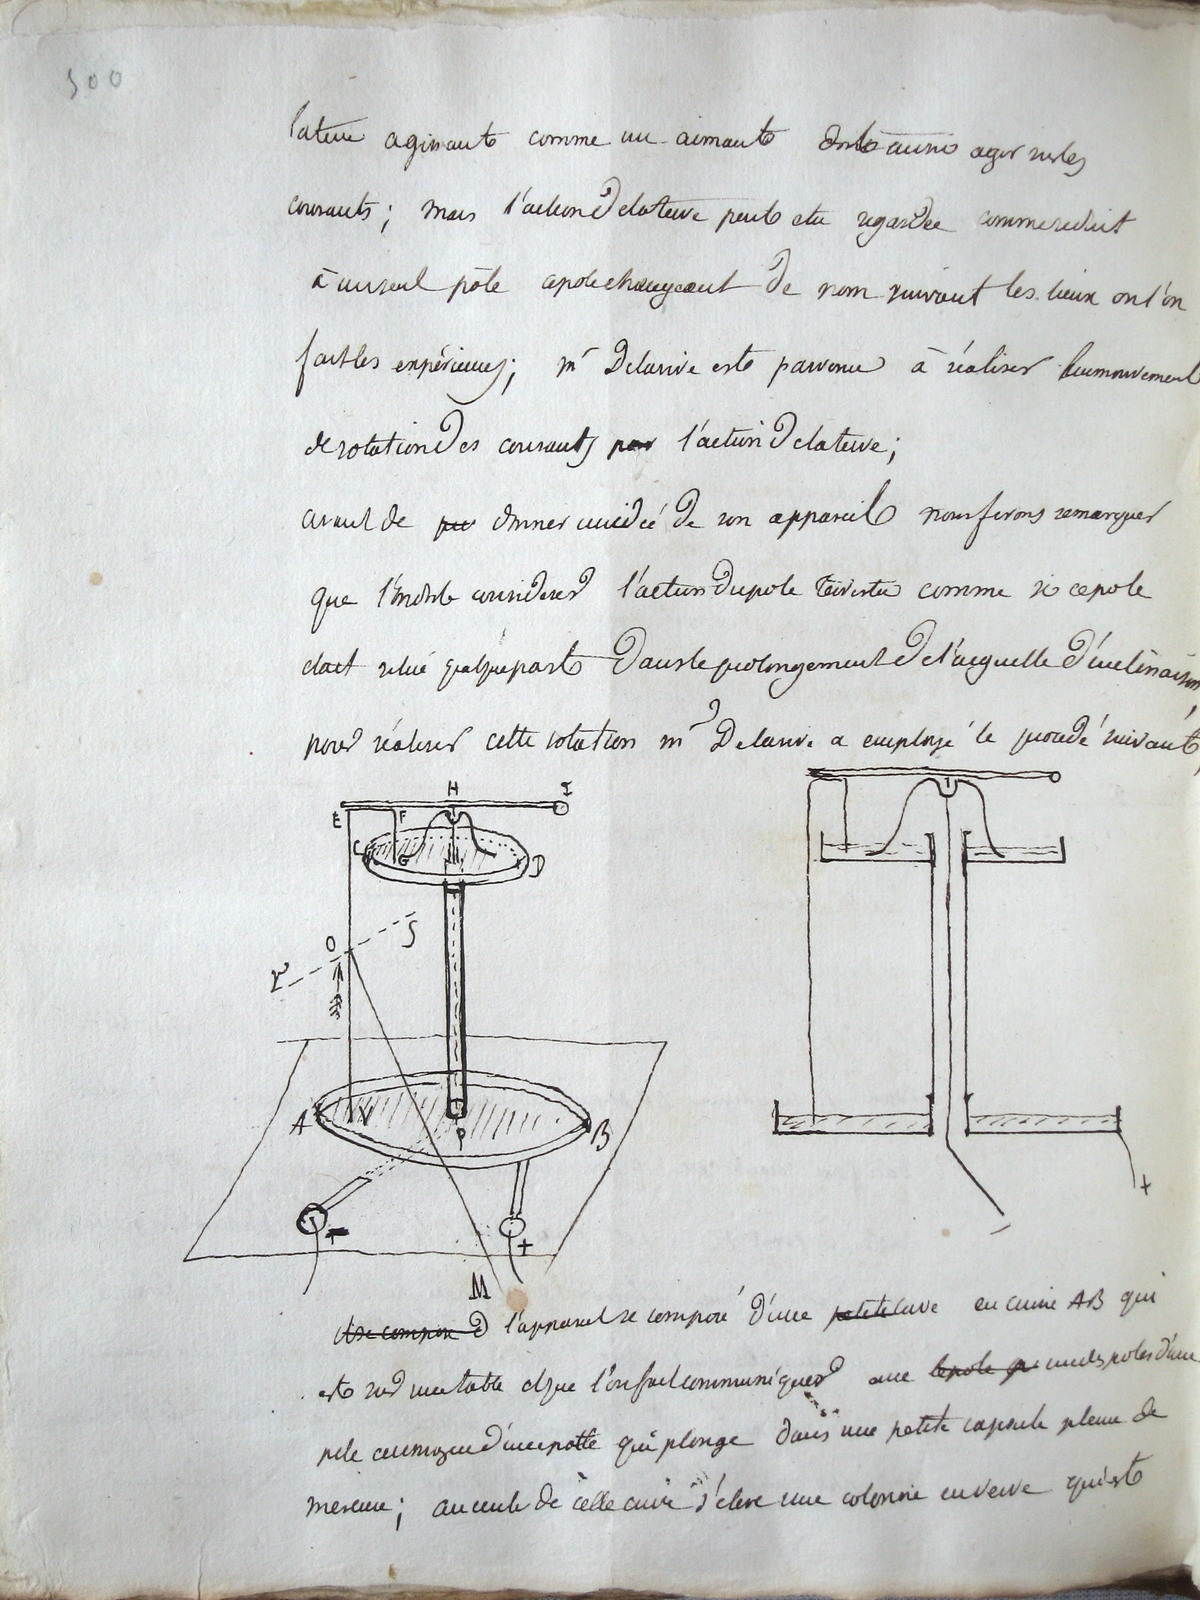 300
la terre agissant comme un aimant doit aussi agir sur les
courants; mais l'action de la terre peut etre regardée comme reduit
à un seul pôle ce pole changeant de nom suivant les lieux où l'on
fait les expériences; mr Delarive est parvenu à réaliser le mouvement
de rotation des courants par l'action de la terre;
avant de donner une idée de son appareil nous ferons remarquer
que l'on doit considerer l'action du pole terrestre comme si ce pole
etait situé quelque part dans le prolongement de l'aeguille d'inclinaison
pour réaliser cette rotation mr Delarive a employé le procédé suivant,
H I
E F
C G D
O S
r
A B
P
+
+
M
l'appareil se compose d'une cuve en cuivre AB qui
est sur une table et que l'on fait communiquer avec un des poles d'une
pile au moyen d'une patte qui plonge dans une petite capsule pleine de
mercure; au centre de cette cuve s'éleve une colonne en verre qui est